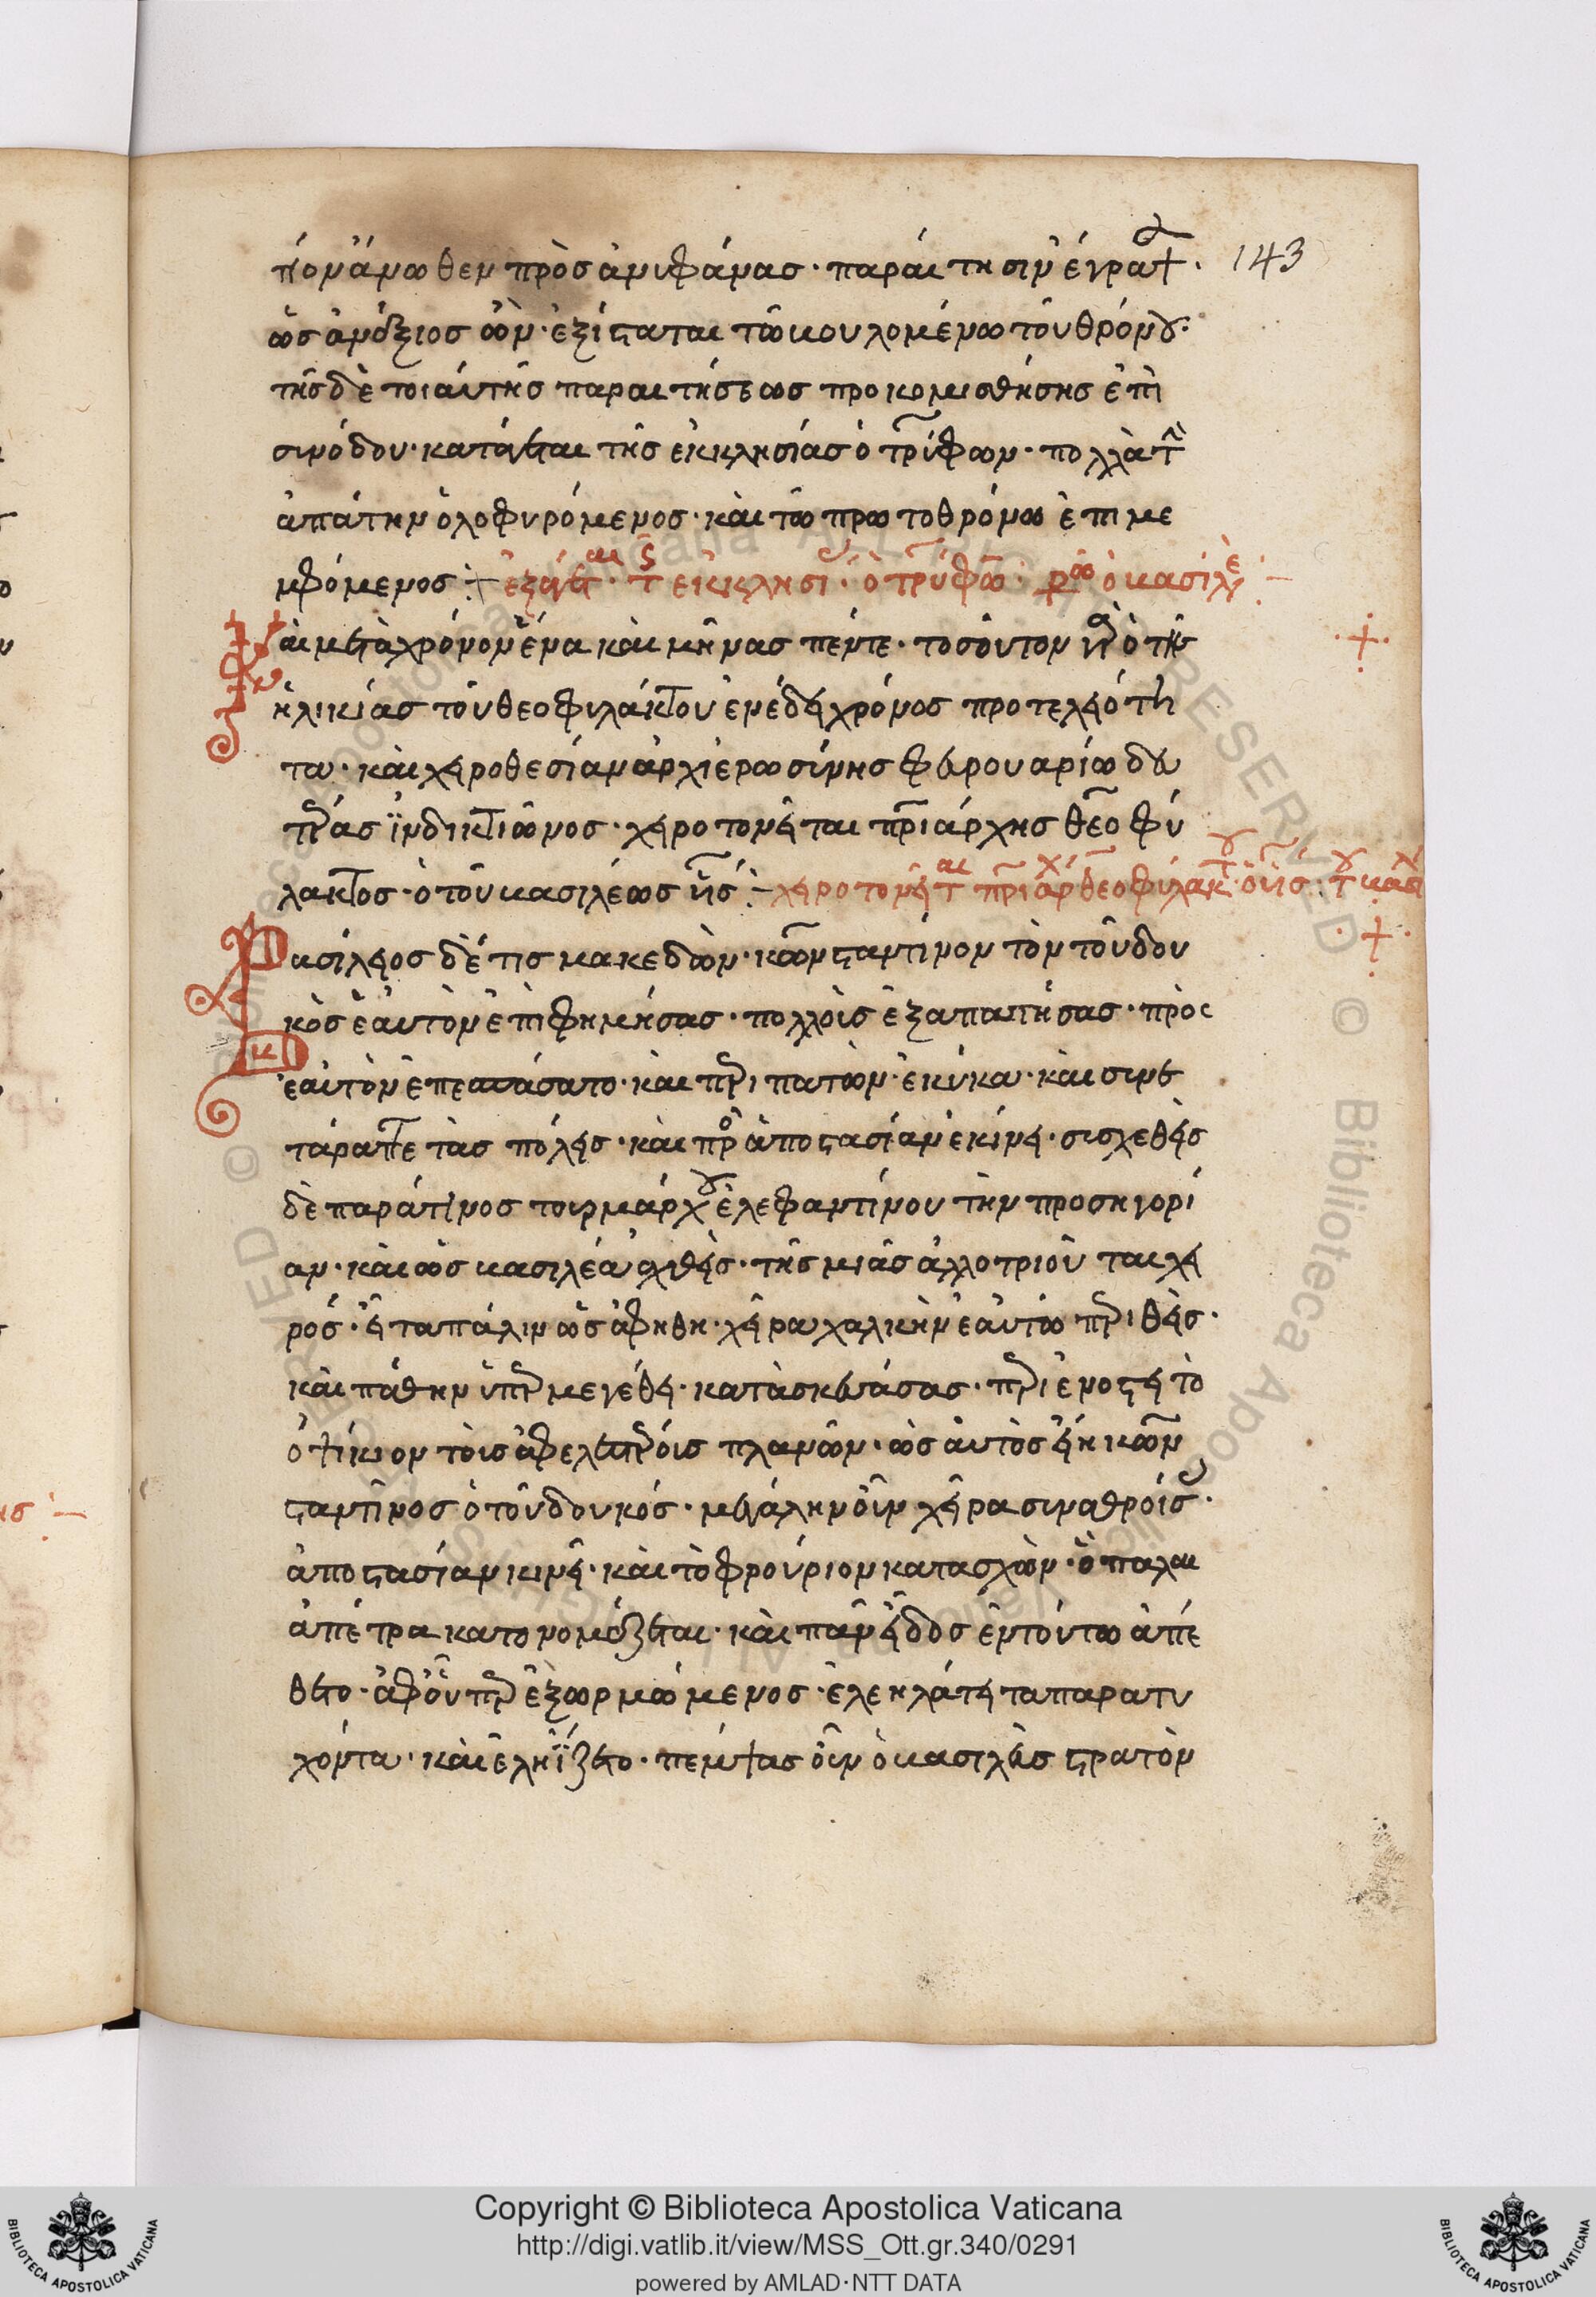 πίον ἄνωθεν πρὸς ἀνυφάνας · παραίτησιν ἔγραψ · 143
ὡς ἀνάξιος ὢν · ἐξίσταται τῶ βουλομένω τοῦ θρόνου ·
τῆς δὲ τοιαύτης παραιτήσεως προκομισθήσης ἐπὶ
συνόδου · κατάγεται τῆς ἐκκλησίας ὁ τρύφων · πολλὰ τ
ἀπάτην ὀλοφυρόμενος · καὶ τῶ πρωτοθρόνω ἐπιμε
μφόμενος :
καὶ μετὰ χρόνον ἕνα καὶ μῆνας πέντε · τοσοῦτον γὰρ ὁ τῆς
ἡλικίας τοῦ θεοφιλάκτου ἐνέδει χρόνος πρὸ τελειότη
τα · καὶ χειροθεσίαν ἀρχιερωσύνης φευρουαρίω δευ
τέρας ἰνδικτιῶνος · χειροτονεῖται πριάρχης θεοφύ
λακτος · ὁ τοῦ βασιλέως υἱός :
Βασίλειος δέ τις μακεδὼν · κωνσταντίνον τὸν τοῦ δου
κὸς ἑαυτὸν ἐπιφημήσας · πολλοὺς ἐξαπατήσας · πρὸς
ἑαυτὸν ἐπεσπάσατο · καὶ περιπατῶν · ἐκύκα · καὶ συνε
τάραττε τὰς πόλεις · καὶ πρὸς ἀποστασίαν ἐκίνει · συσχεθεὶς
δὲ παρά τινος τουρμάρχου ἐλεφαντίνου τὴν προσηγορί
αν · καὶ ὡς βασιλέα ἀχθεὶς · τῆς μιᾶς ἀλλοτριοῦται χει
ρός · εἶτα πάλιν ὡς ἀφήθη · χεῖρα χαλκὴν ἑαυτῶ περιθεὶς ·
καὶ σπάθην ὑπερμεγέθη · κατασκευάσας · περιενοστει τὸ
ὀψίκιον τοὺς ἀφελεστέρους πλανῶν · ὡς αὐτὸς εἴη κων
σταντῖνος ὁ τοῦ δουκός · μεγάλην οὖν χεῖρα συναθροίσ ·
ἀποστασίαν κινεῖ · καὶ τὸ φρούριον κατασχὼν · ὃ παλαι
ἁ πέτρα κατονομάζεται · καὶ πᾶν εἶδος ἐν τούτω ἀπέ
θετο · ἀφ οὗ περ ἐξωρμώμενος · ἐλεηλάτει τὰ παρατυ
χόντα · καὶ ἐληΐζετο · πέμψας οὖν ὁ βασιλεὺς στρατὸν
Copyright © Biblioteca Apostolica Vaticana
http://digi.vatlib.it/view/MSS_Ott.gr.340/0291
powered by AMLAD·NTT DATA
BIBLIOTECA APOSTOLICA VATICANA
BIBLIOTECA APOSTOLICA VATICANA